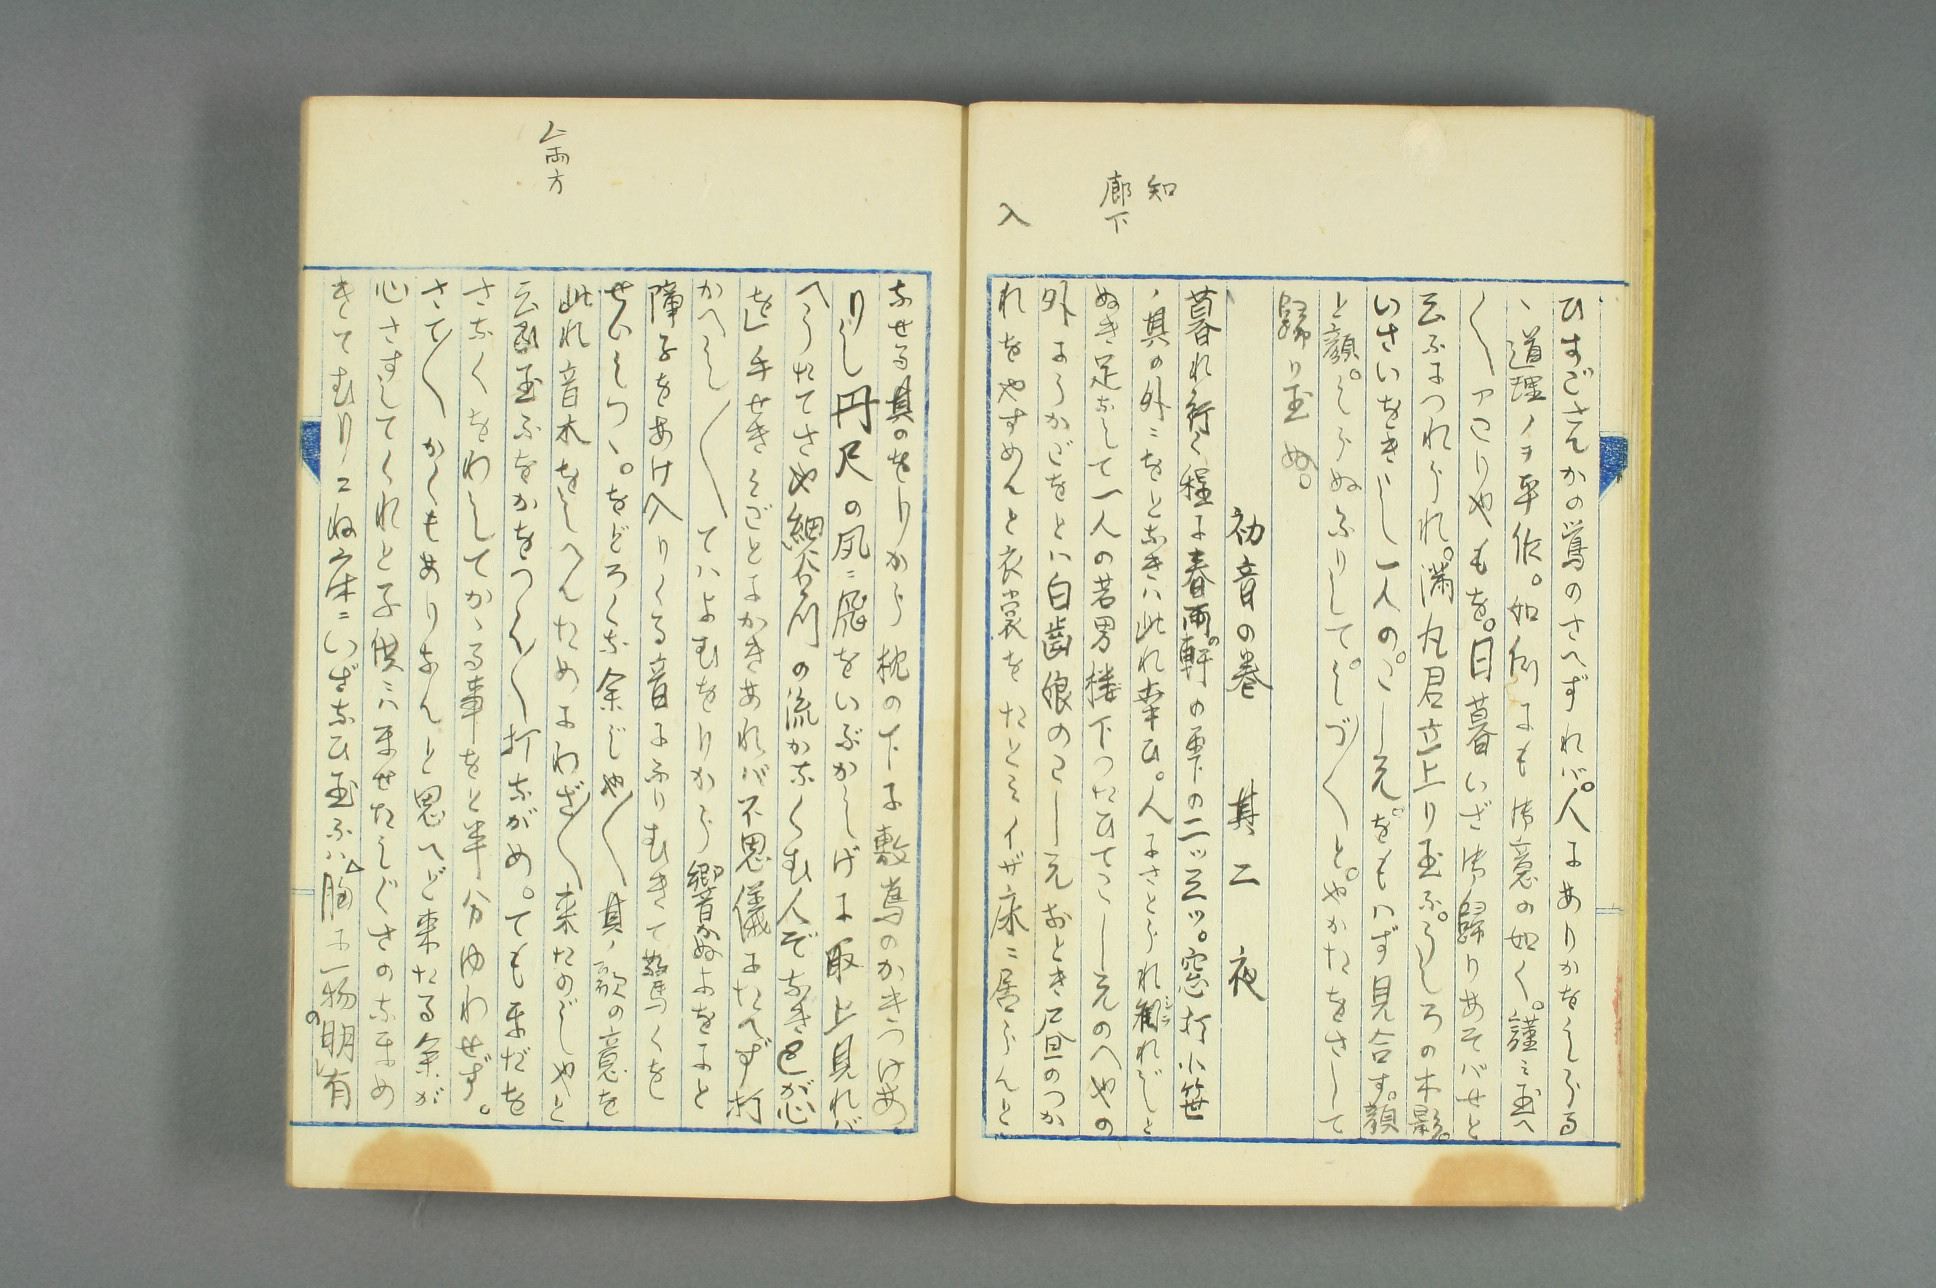 知
廊下
入
ひすごさんかの鴬のさへずれバ。人にありかをしらるる
、道理ノヲ平作。如何にも御意の如く。謹ミ玉へ
〱アこりやもを。日暮いざ御歸りあそバせと
云ふにつれられ。満丸君立上り玉ふ。うしろの木影。
いさいをきゝし一人の。こし元。をもハず見合す。顔
と顔。しらぬふりして。しづ〱と。やかたをさして
歸り玉ぬ。
初音の巻 其二 夜
暮れ行く程に春雨の。軒の雫の二ツ三ツ。窓打小笹
ノ其の外ニをとなきハ此れ幸ひ。人にさとられ
ぬき足なして一人の若男楼下つたひてこし元のへやの
外にうかごをとハ白歯娘のこし元おとき一旦のつか
れをやすめんと衣裳をたとミイザ床ニ居らんと
厶両方
なせる其のをりから枕の下に敷鴬のかきつけあ
りし円尺の夙ニ飛をいぶかしげに取上見れバ
へうたてさや細谷川の流かなくむ人ぞなき己が心
を手せきミごとにかきあれバ不思儀にたへず打
かへし〱てハよむをりから郷音かぬよをにと
障子をあけ入りくる音にふりむきて驚くを
せいしつゝ。をどろく な余じや〱其ノ歌の意を
此れ音木をしへんためにわざ〱来たのじやと
云 玉ふをかをつく〱打ながめ。ても まだを
さなくをわしてかゝる事をと半分ゆわせず。
さて〱かくもありなんと思へど来たる余が
心さすしてくれと子供ニハませたしぐさのなまめ
きてむりニね床ニいざなひ玉ふハ胸に一物明の有